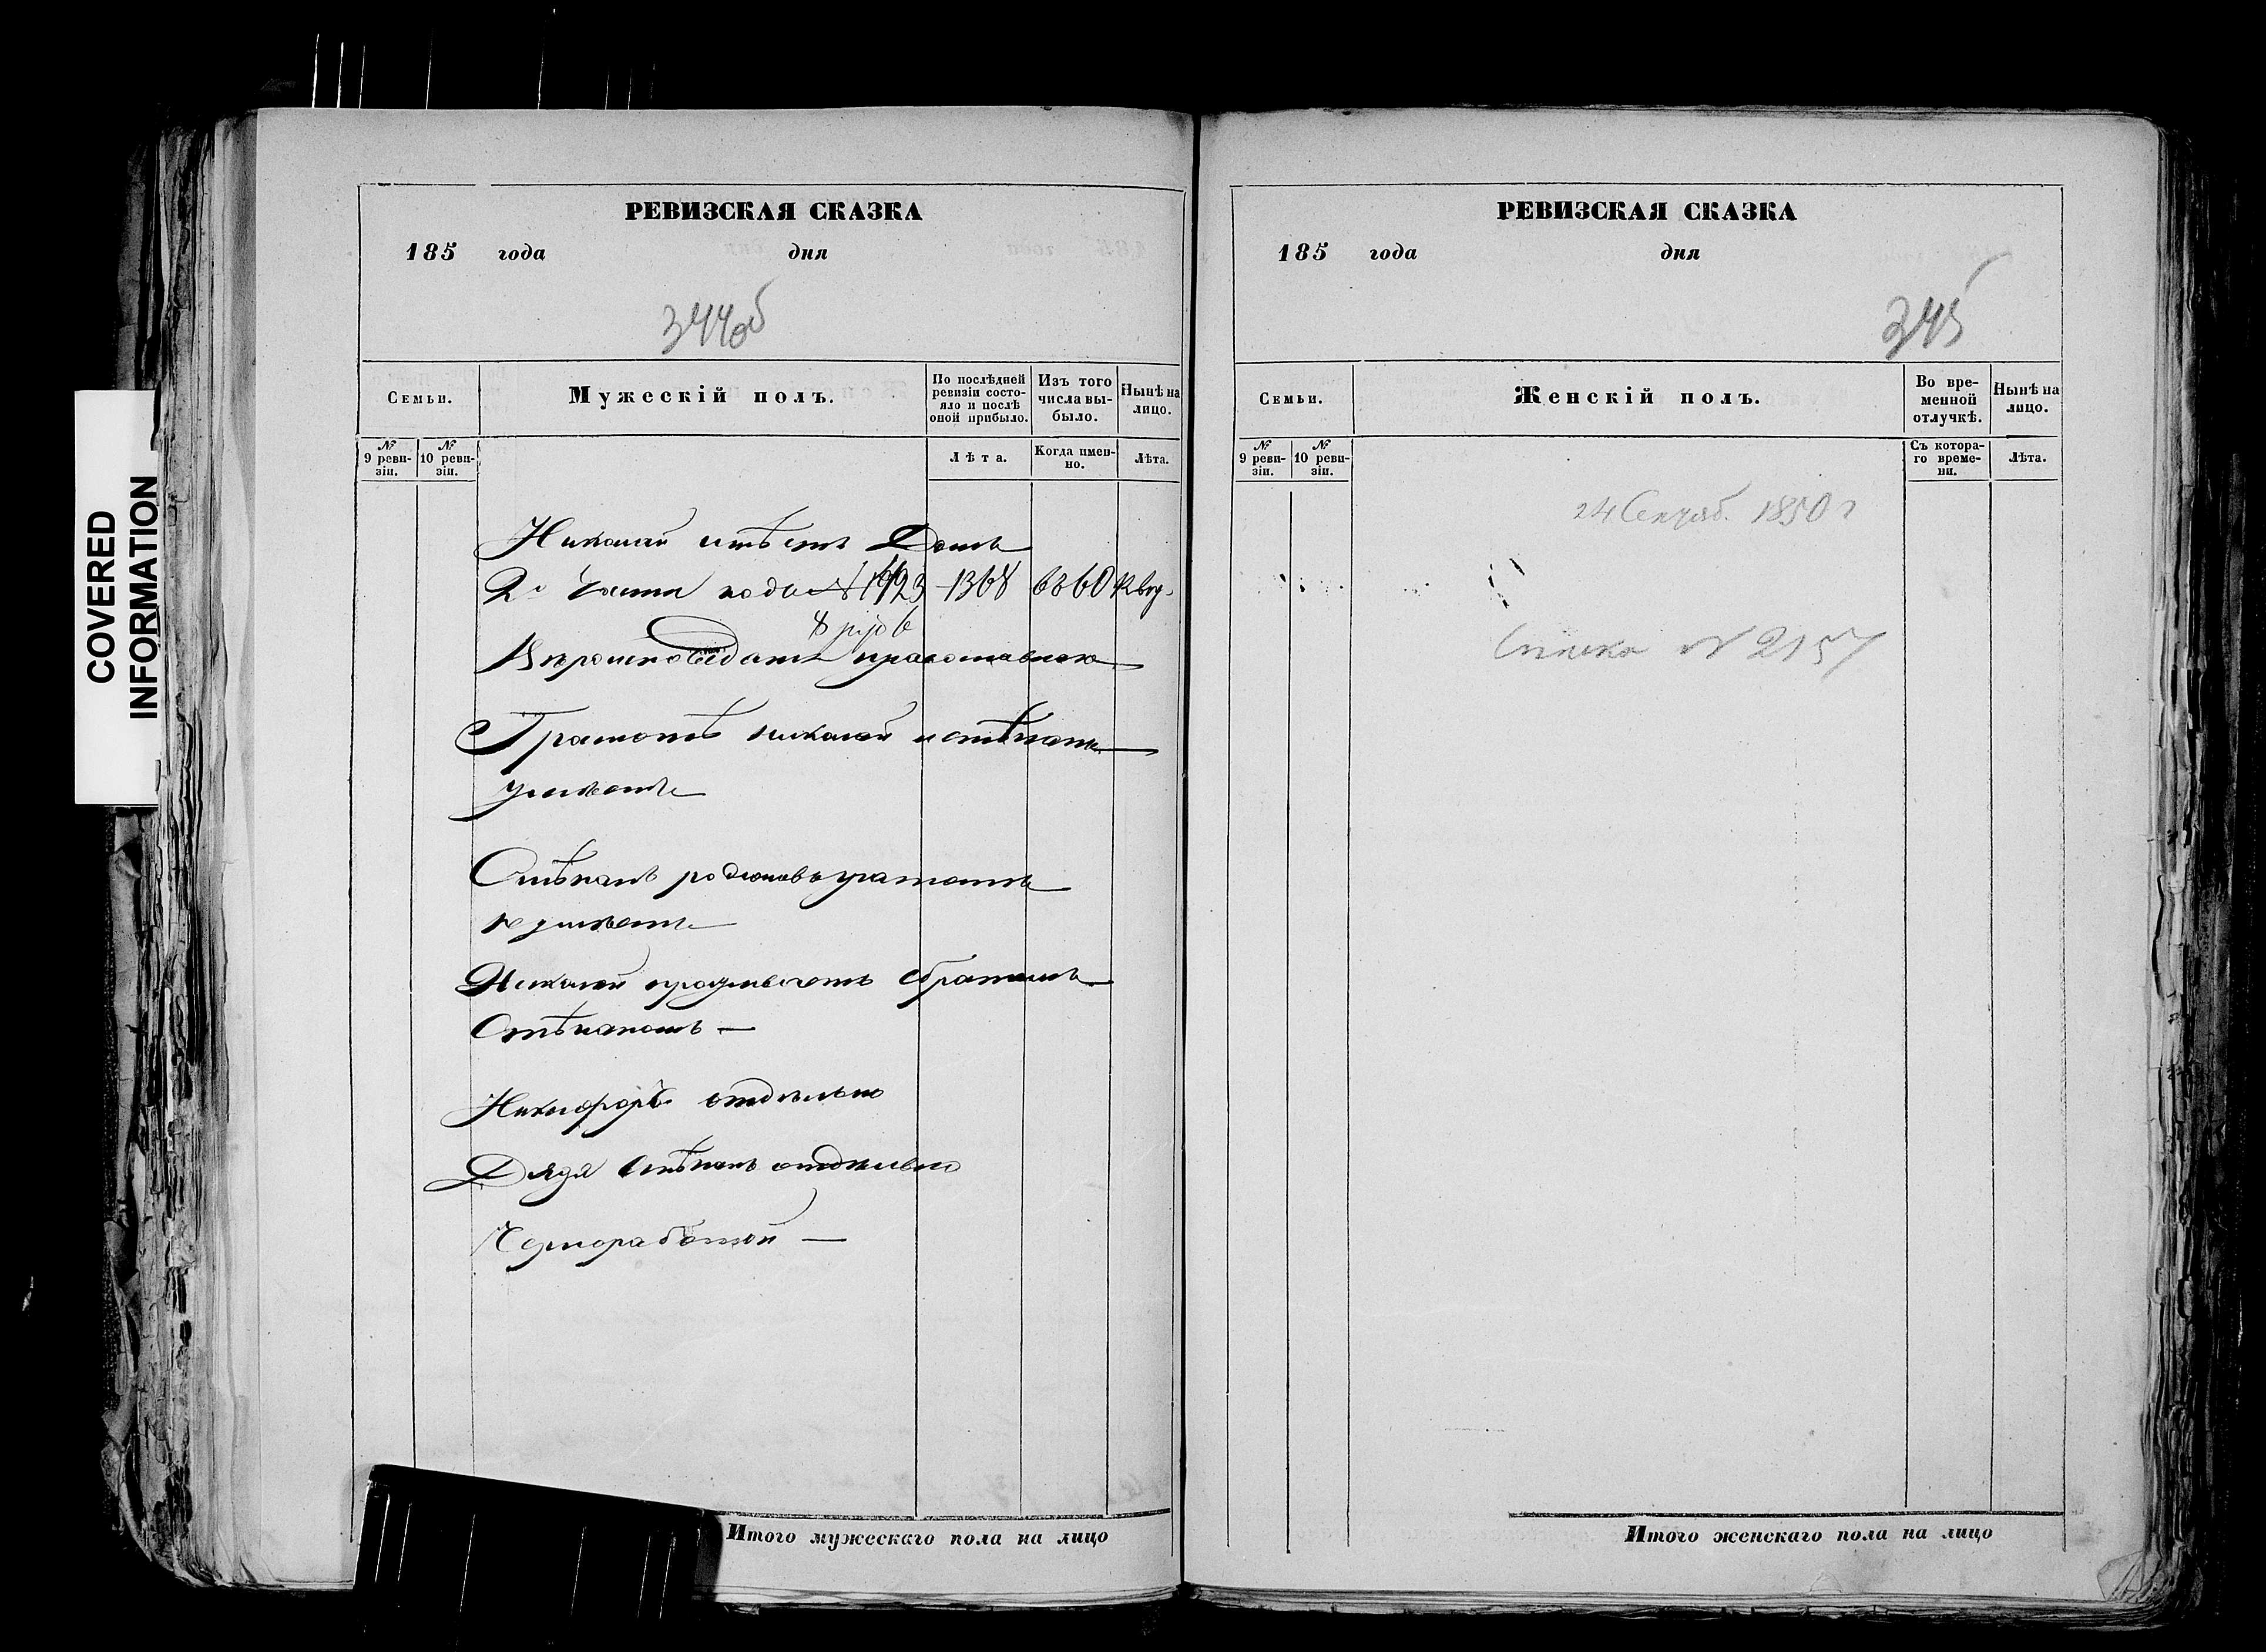 COVERED
INFORMATION
РЕВИЗСКАЯ СКАЗКА
185 года дня
344об
Семьи.
Мужескій полъ.
По послѣдней ревизіи состо-
яло и послѣ оной прибыло.
Изъ того числа вы-
было.
Нынѣ на лицо.
№ 9 реви-
зіи.
№ 10 реви-
зіи.
Лѣта.
Когда имен-
но.
Лѣта.
Николай имѣетъ Домъ
2й Части подъ № 1368
Вѣроисповѣданія православнаго
Грамотѣ николай и степанъ
умѣютъ
Степанъ родионовъ грамотѣ
не умѣетъ
Николай съ братомъ
Степаномъ —
Никифоръ отдѣльно
Дядя Степанъ отдѣльно
Чернорабочій —
Итого мужескаго пола на лицо
РЕВИЗСКАЯ СКАЗКА
185 года дня
345
Семьи.
Женскій полъ.
Во вре-
менной
отлучкѣ.
Нынѣ на лицо.
№ 9 реви-
зіи.
№ 10 реви-
зіи.
Съ котора-
го време-
ни.
Лѣта.
24 Сентяб. 1850 г
№ 2157
Итого женскаго пола на лицо